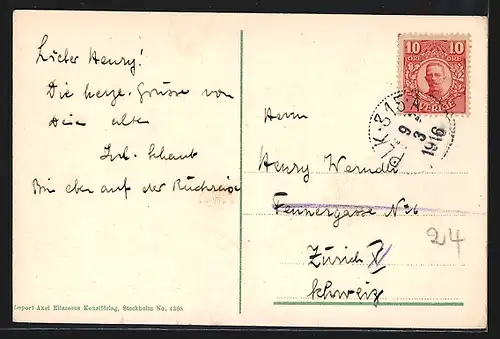 Lieber Henry!
Die herzl. Grüsse von
Dein alter
Bin eben auf der Rückreise
Export Axel Eliassons Konstförlag, Stockholm No. 4308
10 10
ÖRE ÖRE
SVERIGE
PLK·315·A
9
3
1916
Herrn
Henry
Fennergasse No 6
Zürich IV
Schweiz
24